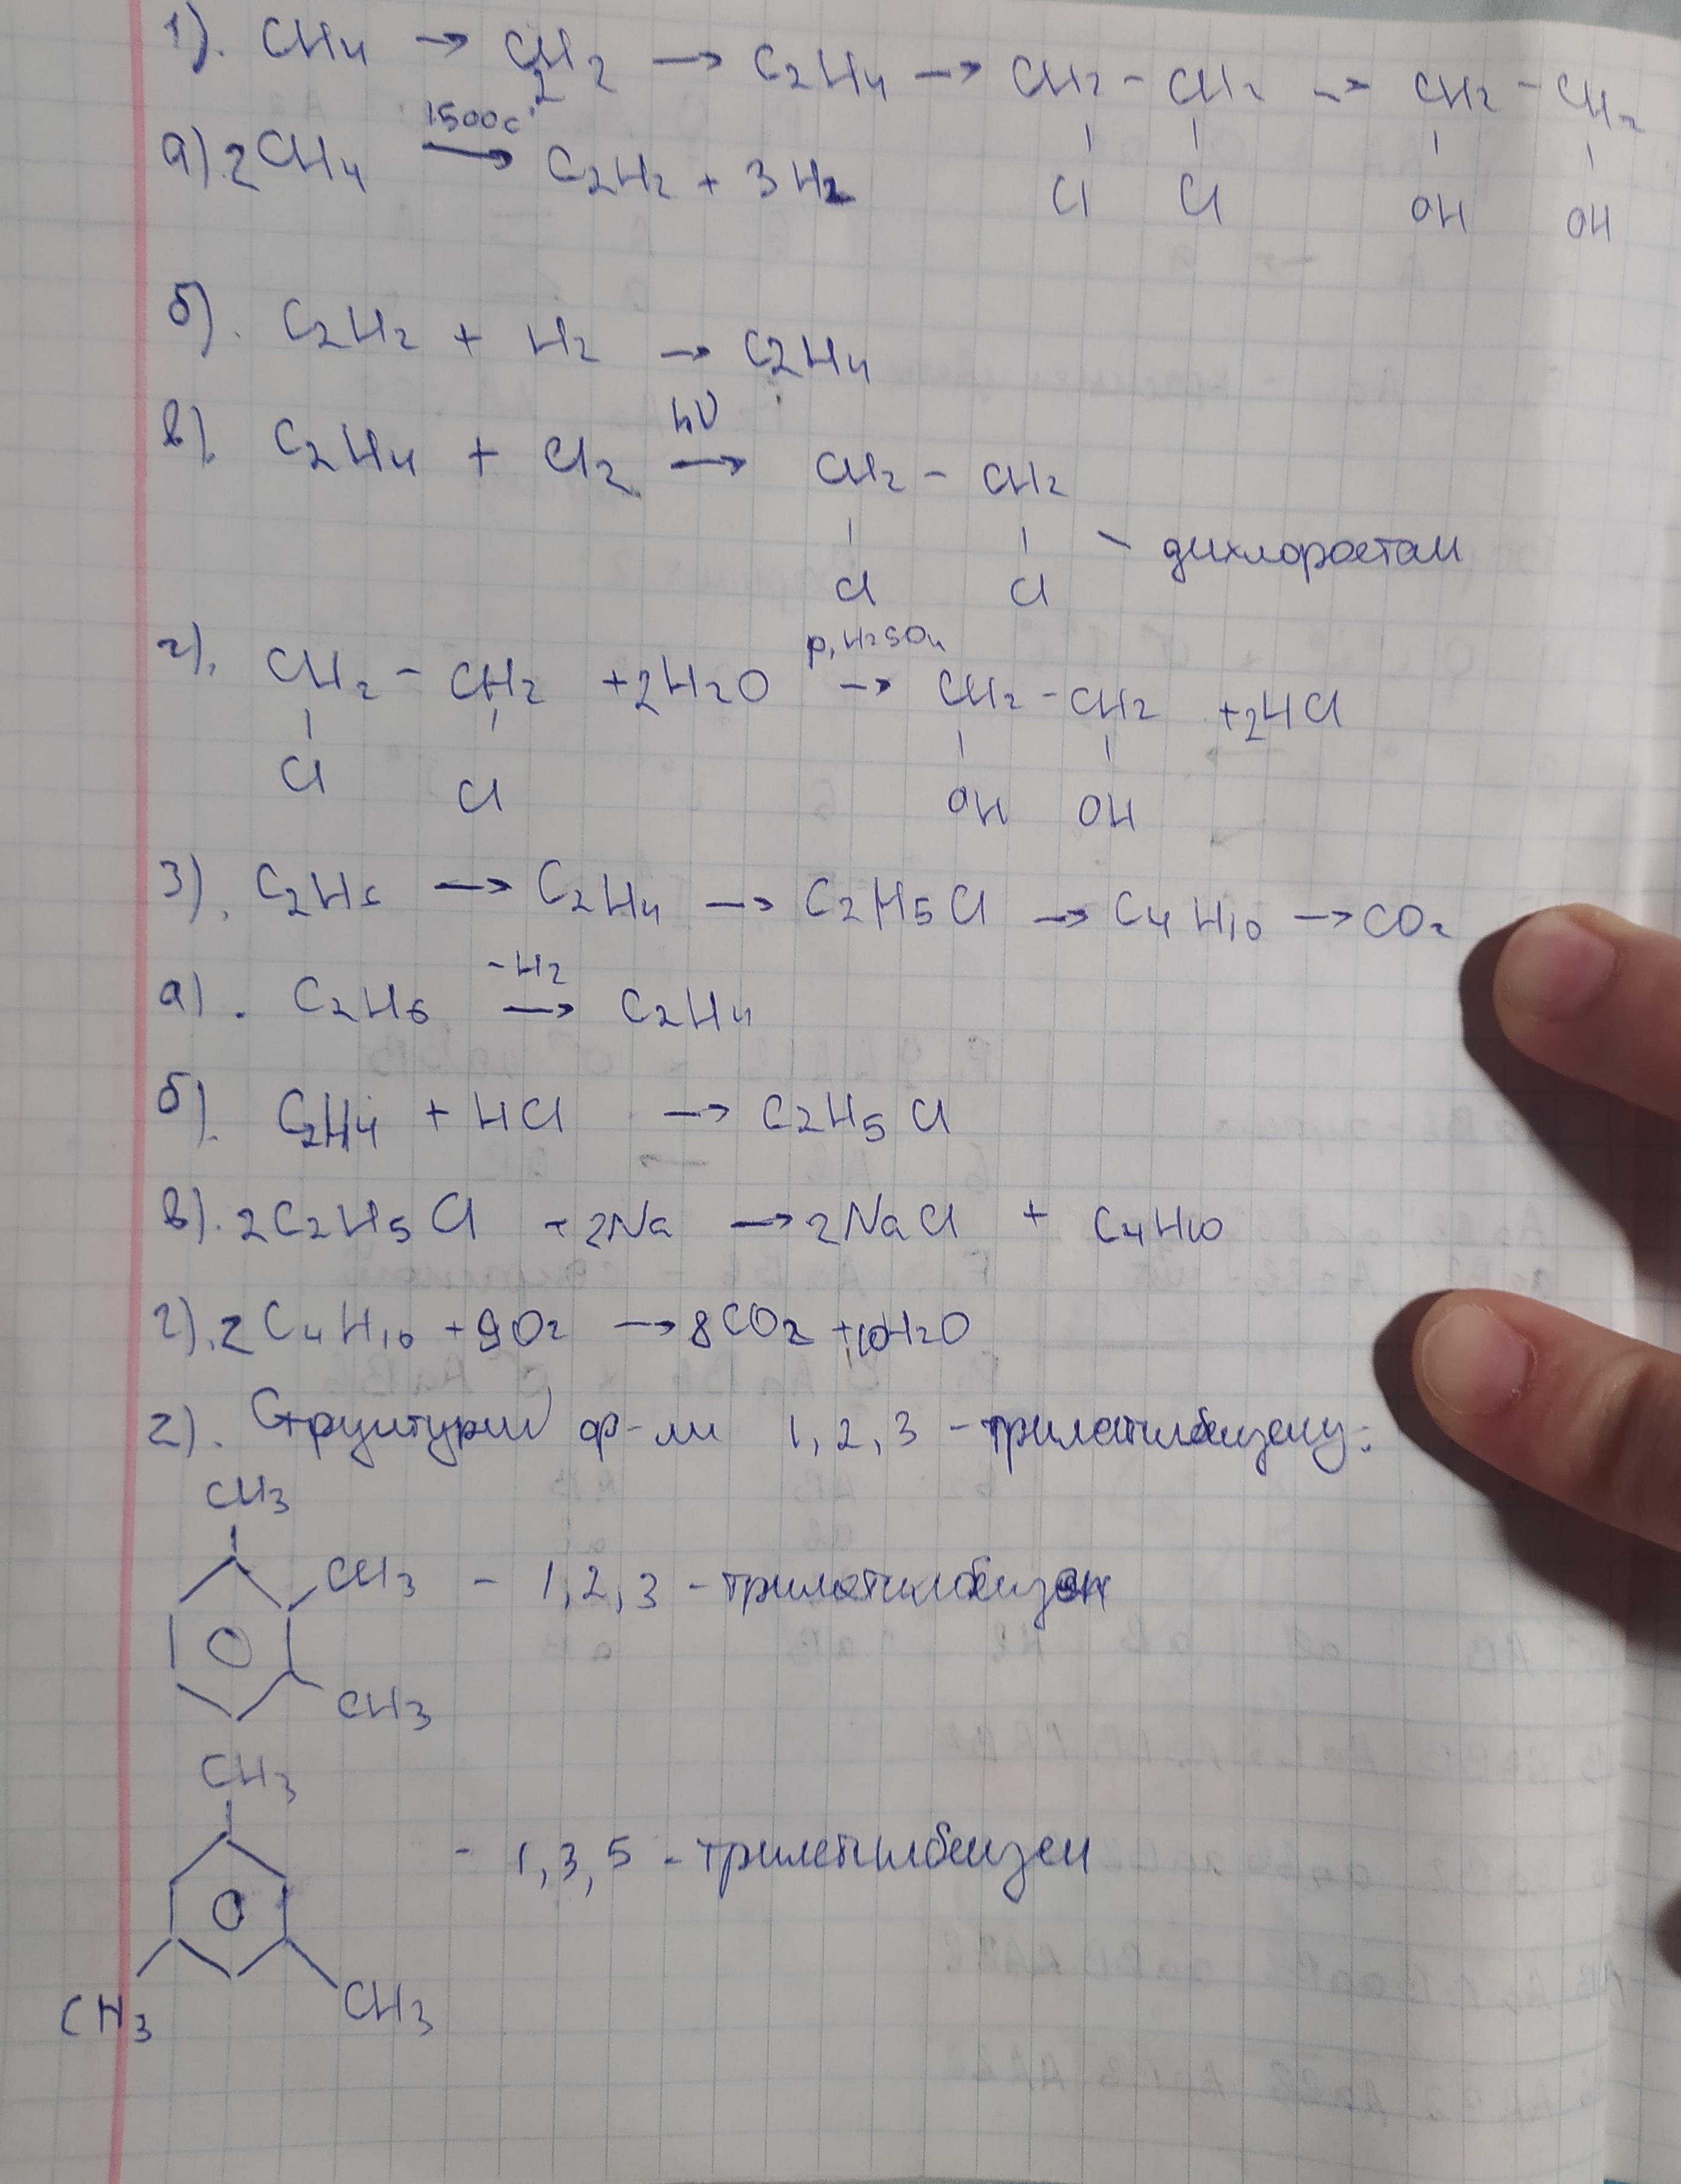 1). CH4 → C2H2 → C2H4 → CH2 - CH2 → CH2 - CH2
Cl Cl OH OH
а). 2CH4 1500c° → C2H2 + 3H2
б). C2H2 + H2 → C2H4
в). C2H4 + Cl2 hν → CH2 - CH2
Cl Cl - дихлороетан
г). CH2 - CH2 + 2H2O p, H2SO4 → CH2 - CH2 + 2HCl
Cl Cl OH OH
3). C2H6 → C2H4 → C2H5Cl → C4H10 → CO2
а). C2H6 -H2 → C2H4
б). C2H4 + HCl → C2H5Cl
в). 2C2H5Cl + 2Na → 2NaCl + C4H10
г). 2C4H10 + 9O2 → 8CO2 + 10H2O
2). Структурні ф-ли 1, 2, 3 - триметилбензену:
CH3
CH3 - 1, 2, 3 - триметилбензен
CH3
CH3
- 1, 3, 5 - триметилбензен
CH3 CH3